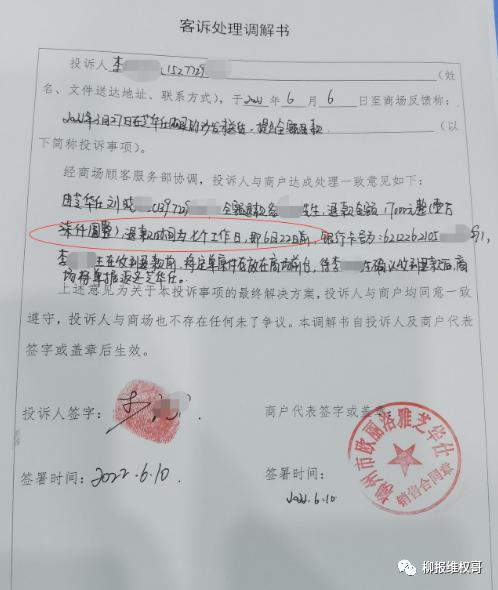 客诉处理调解书
投诉人李 1527729 (姓
名、文件送达地址、联系方式),于2022年6月6日至商场反馈称:
2022年 月27日在芝华仕 沙发 ,提出全额退款 (以
下简称投诉事项)。
经商场顾客服务部协调,投诉人与商户达成处理一致意见如下:
由芝华仕刘 (1397729 全额退款给 先生,退款金额:17000元整(壹万
柒仟圆整)退款时间为七个工作日,即6月22日前,银行卡号:6212262105
李 在收到退款前,将定单原件存放在商场前台,待李 确认收到退款后商
场将单据返还芝华仕。
上述意见为关于本投诉事项的最终解决方案,投诉人与商户均同意一致
遵守,投诉人与商场也不存在任何未了争议。本调解书自投诉人及商户代表
签字或盖章后生效。
投诉人签字:李
商户代表签字或盖章:
柳州市欧丽洛雅芝华仕
销售合同章
签署时间:2022.6.10
签署时间:
2022.6.10
柳报维权哥